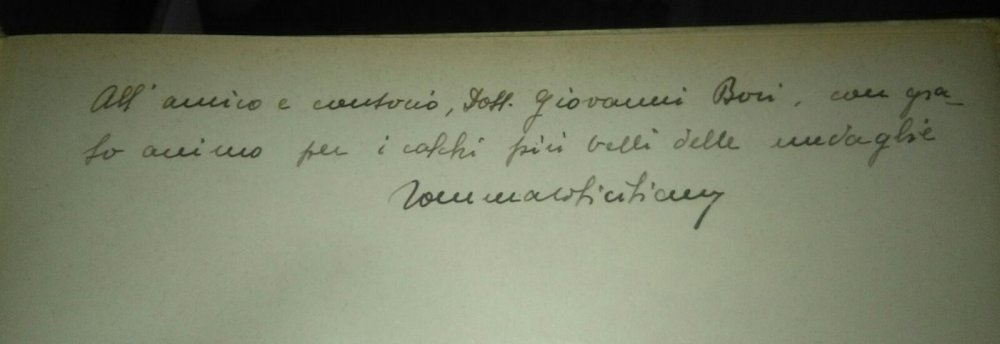 All'amico e consocio, Dott. Giovanni Bovi, con gra-
to animo per i calchi più belli delle medaglie